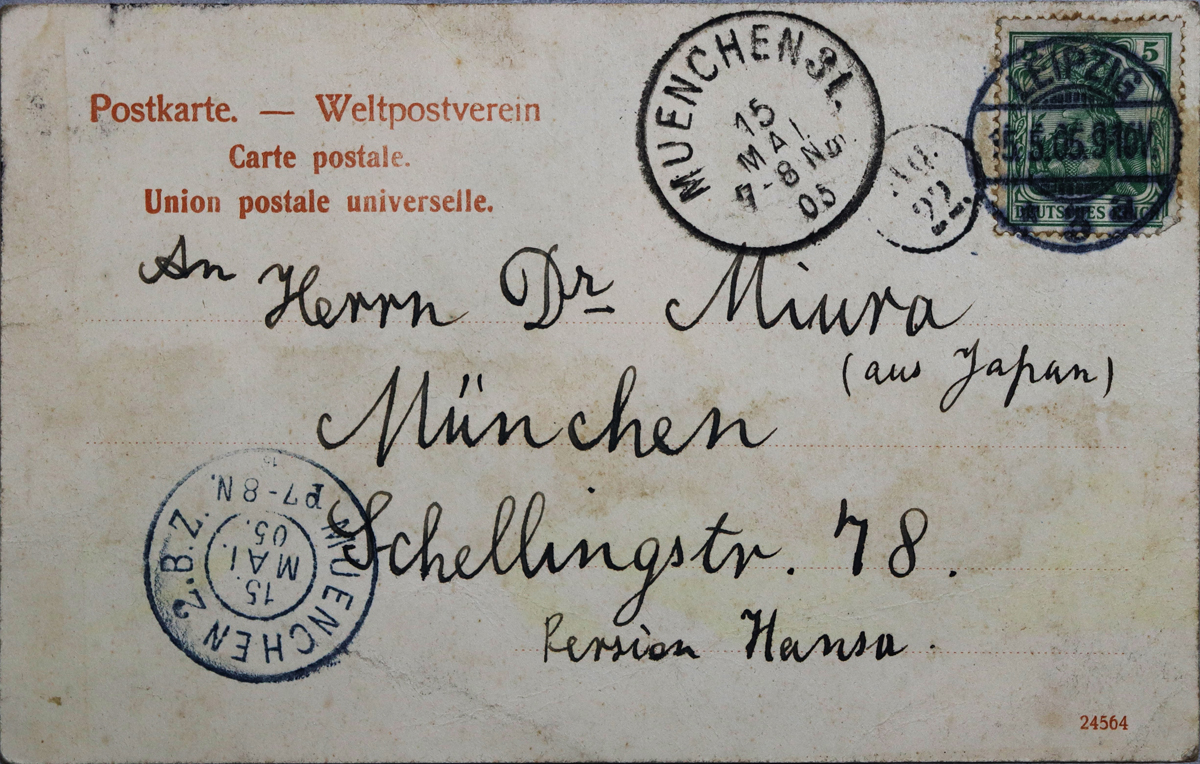 Postkarte. — Weltpostverein
Carte postale.
Union postale universelle.
MUENCHEN 31.
15
MAI
7-8 N
05
AU.
22
5
LEIPZIG
15.5.05.9-10V.
3
DEUTSCHES REICH
An Herrn Dr Miura
(aus Japan)
München
Schellingstr. 78.
Pension Hansa.
MUENCHEN 2.B.Z.
15.
MAI.
05.
7-8 N.
24564